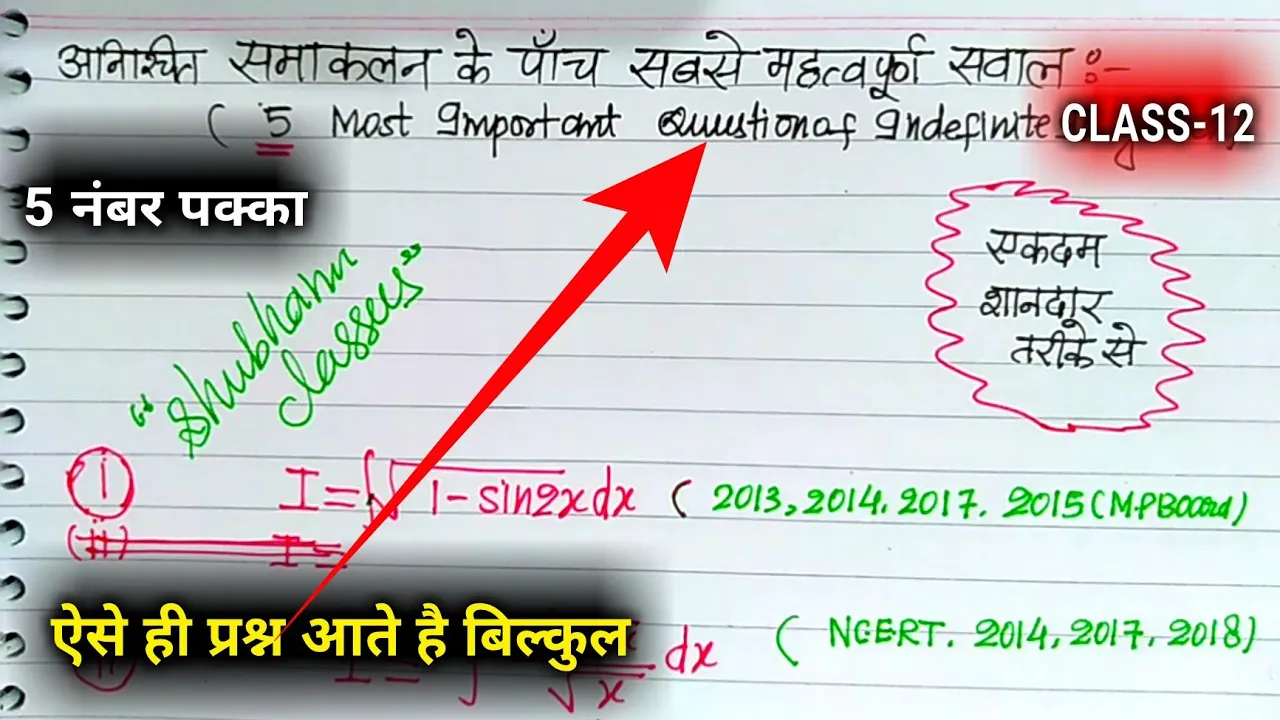 अनिश्चित समाकलन के पाँच सबसे महत्वपूर्ण सवाल :-
( 5 Most Important Question of Indefinite
CLASS-12
5 नंबर पक्का
एकदम
शानदार
तरीके से
"Shubham
classes"
(i) I = ∫√1-sin2x dx ( 2013, 2014. 2017. 2015 (M.P Board)
(ii) I =
ऐसे ही प्रश्न आते है बिल्कुल
√x dx ( NCERT. 2014, 2017, 2018)